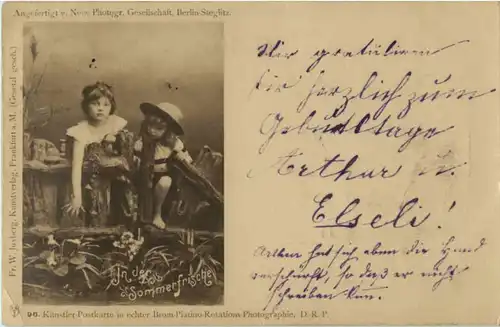 Angefertigt v. Neue Photogr. Gesellschaft, Berlin-Steglitz.
Fr. W. Juxberg, Kunstverlag, Frankfurt a. M. (Gesetzl. gesch.)
Wir gratulieren
Dir herzlich zum
Geburtstage
Arthur u.
Elseli!
Arthur hat sich eben die Hand
verschürft, so daß er nicht
schreiben kann.
In der
Sommerfrische
96. Künstler-Postkarte in echter Brom-Platino-Rotations-Photographie. D. R. P.